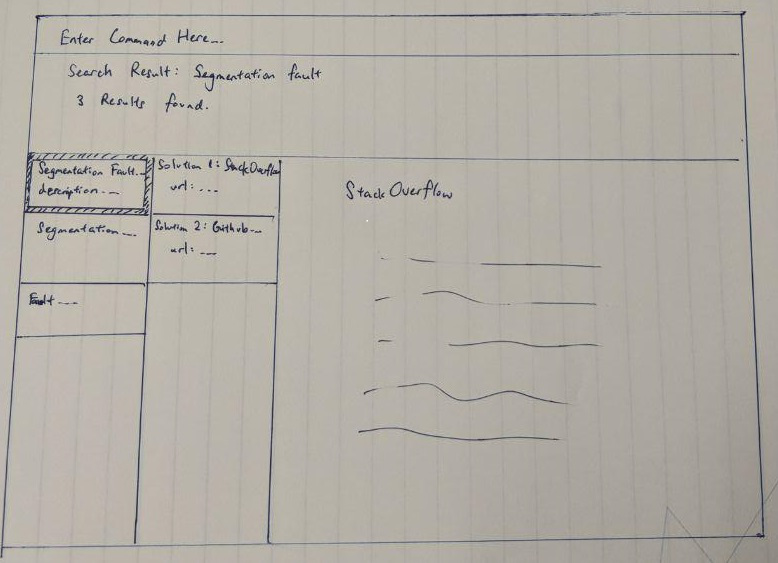 Enter Command Here...
Search Result: Segmentation fault
3 Results found.
Segmentation Fault...
description...
Segmentation...
Fault...
Solution 1: StackOverflow
url: ...
Solution 2: Github...
url: ...
StackOverflow